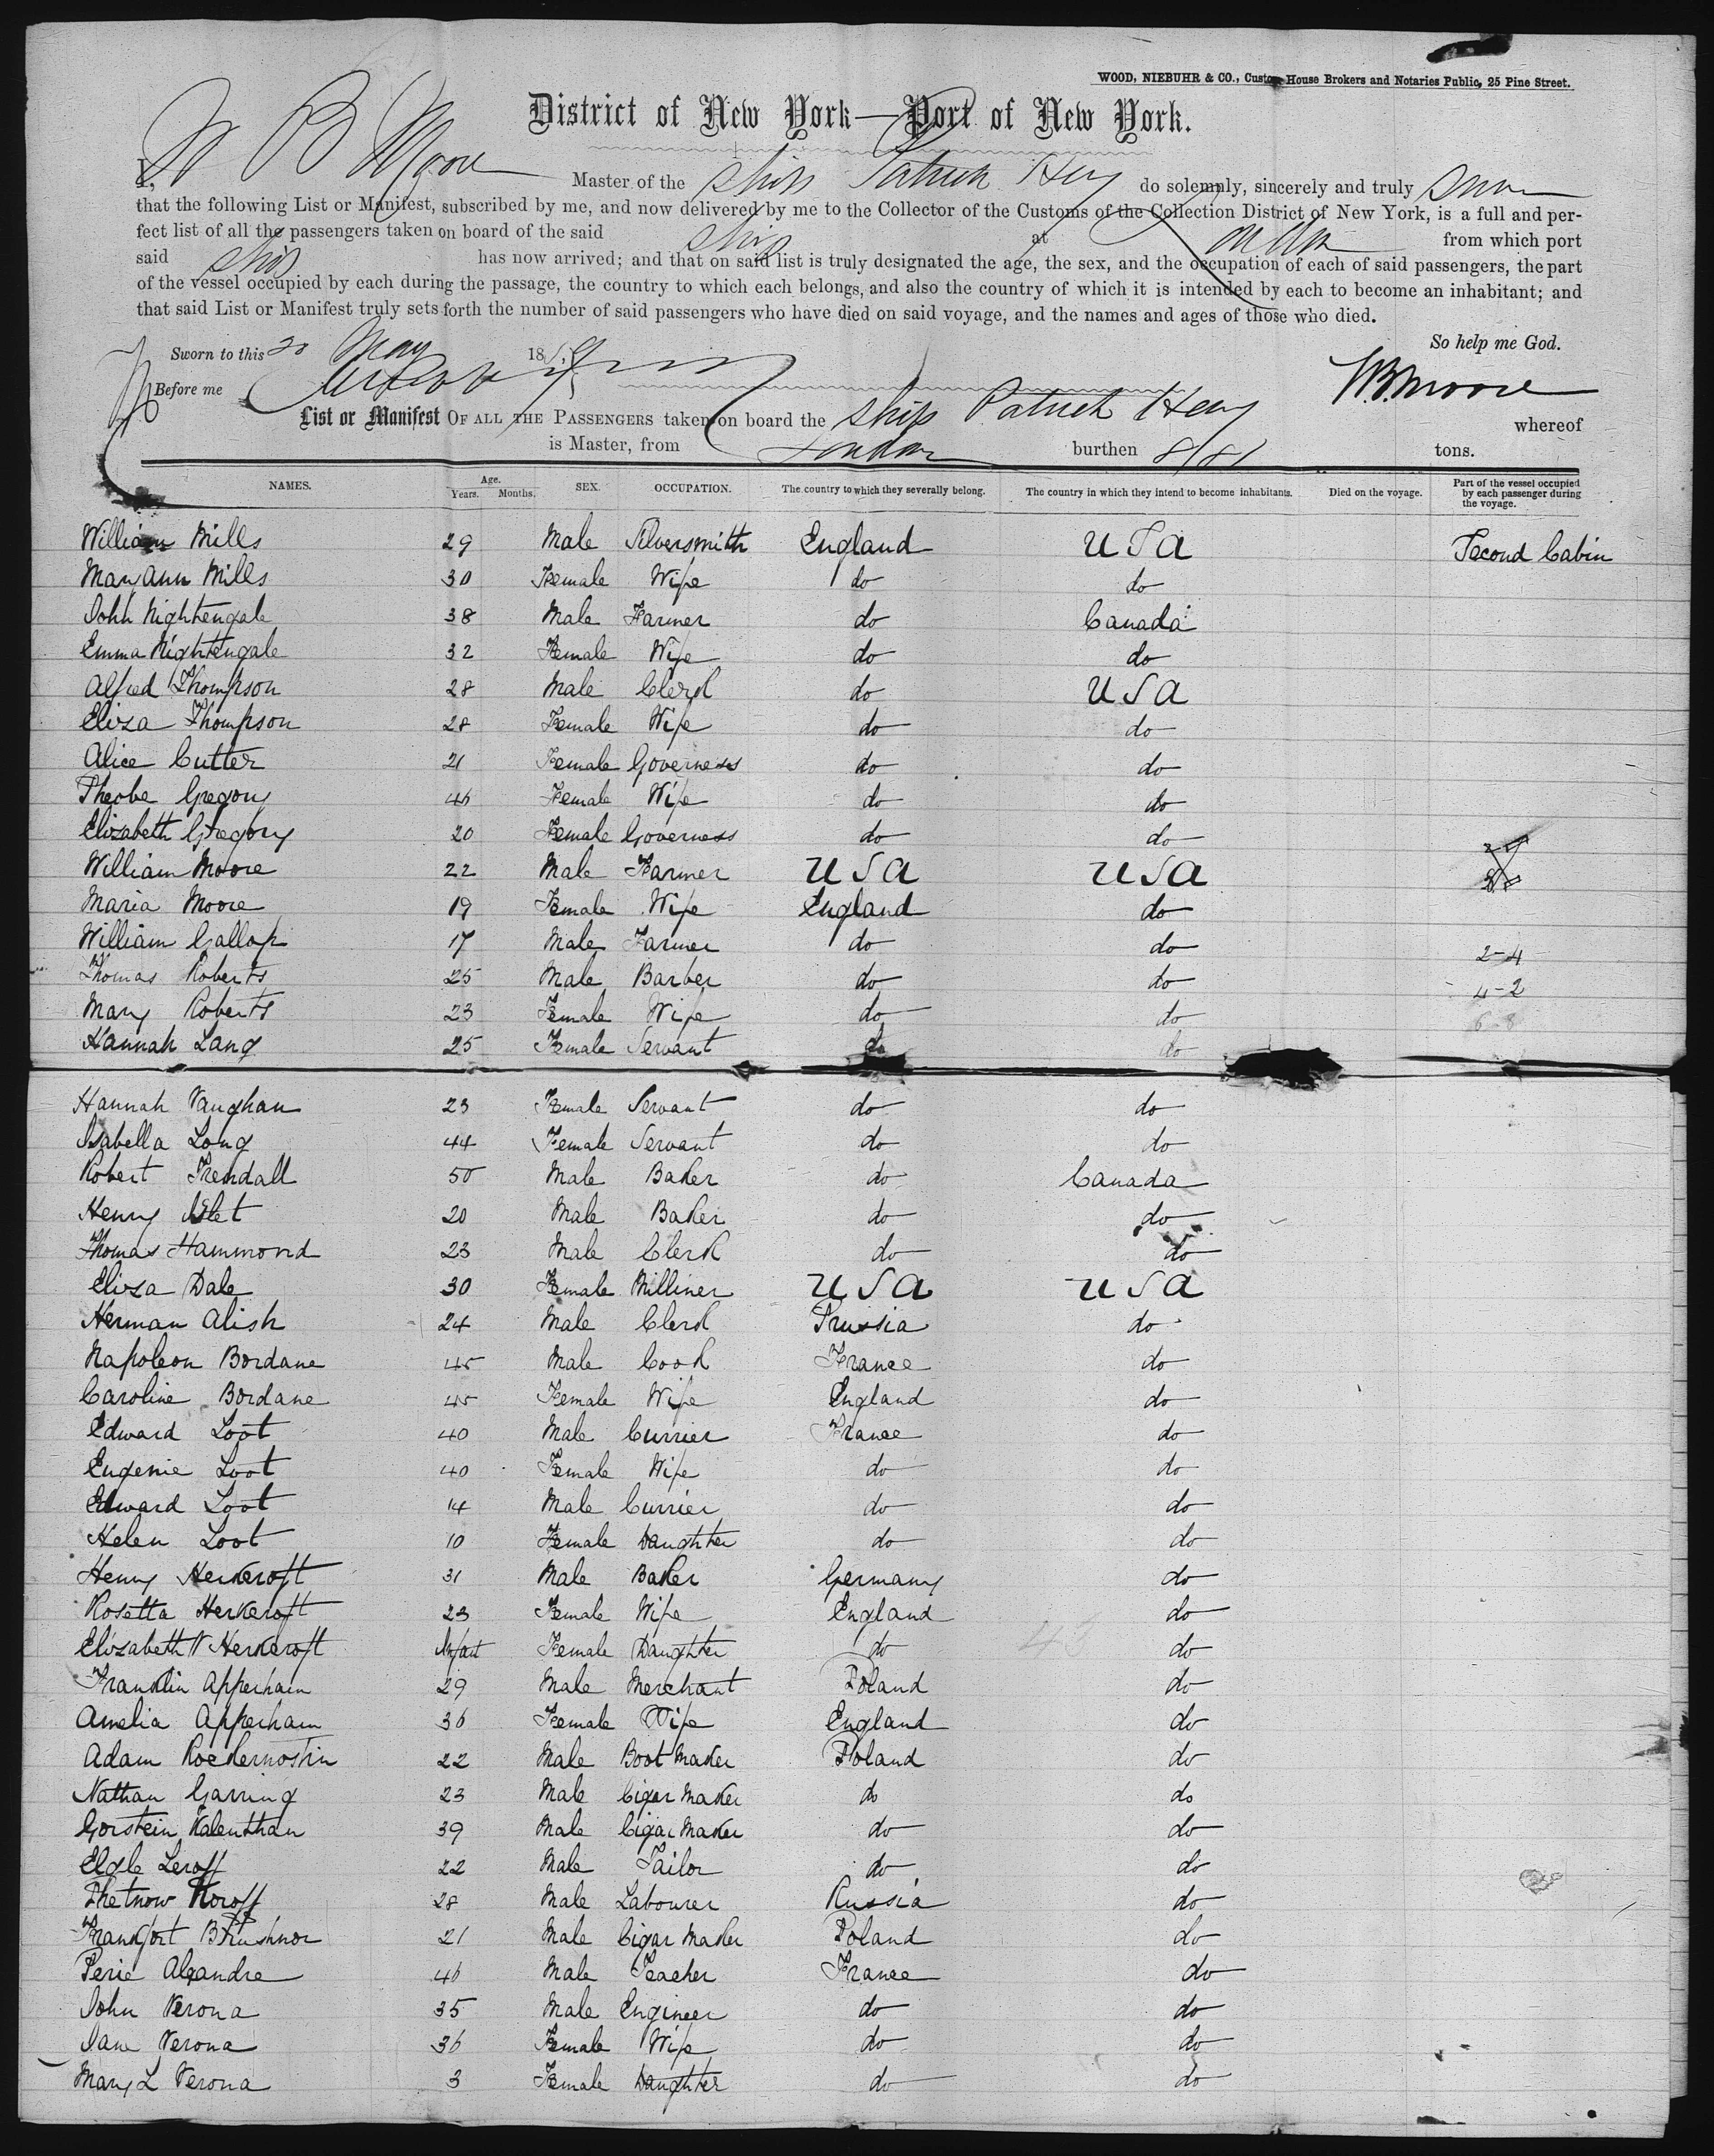 WOOD, NIEBUHR & CO., Custom House Brokers and Notaries Public, 25 Pine Street.
District of New York—Port of New York.
I, W B Moore Master of the ship Patrick Heny do solemnly, sincerely and truly swear
that the following List or Manifest, subscribed by me, and now delivered by me to the Collector of the Customs of the Collection District of New York, is a full and per-
fect list of all the passengers taken on board of the said ship at London from which port
said ship has now arrived; and that on said list is truly designated the age, the sex, and the occupation of each of said passengers, the part
of the vessel occupied by each during the passage, the country to which each belongs, and also the country of which it is intended by each to become an inhabitant; and
that said List or Manifest truly sets forth the number of said passengers who have died on said voyage, and the names and ages of those who died.
So help me God.
Sworn to this 20 May 185
Before me
W.B. Moore
List or Manifest OF ALL THE PASSENGERS taken on board the ship Patrick Heny whereof
is Master, from London burthen 881 tons.
NAMES. Age. Years. Months. SEX. OCCUPATION. The country to which they severally belong. The country in which they intend to become inhabitants. Died on the voyage. Part of the vessel occupied by each passenger during the voyage.
William Mills 29 Male Silversmith England USA Second Cabin
Mary Ann Mills 30 Female Wife do do
John Nightengale 38 Male Farmer do Canada
Emma Nightengale 32 Female Wife do do
Alfred Thompson 28 Male Clerk do USA
Eliza Thompson 28 Female Wife do do
Alice Cutter 21 Female Governess do do
Pheobe Gregory 46 Female Wife do do
Elizabeth Gregory 20 Female Governess do do
William Moore 22 Male Farmer USA USA
Maria Moore 19 Female Wife England do
William Gallop 17 Male Farmer do do 2-4
Thomas Roberts 25 Male Barber do do 4-2
Mary Roberts 23 Female Wife do do 6-8
Hannah Lang 25 Female Servant do do
Hannah Vaughan 23 Female Servant do do
Isabella Long 44 Female Servant do do
Robert Trendall 50 Male Baker do Canada
Henry Islet 20 Male Baker do do
Thomas Hammond 23 Male Clerk do do
Eliza Dale 30 Female Milliner USA USA
Herman Alish 24 Male Clerk Prussia do
Napoleon Bordane 45 Male Cook France do
Caroline Bordane 45 Female Wife England do
Edward Loot 40 Male Currier France do
Eugenie Loot 40 Female Wife do do
Edward Loot 14 Male Currier do do
Helen Loot 10 Female Daughter do do
Henry Herkeroft 31 Male Baker Germany do
Rosetta Herkeroft 23 Female Wife England do
Elizabeth V Herkeroft Infant Female Daughter do do
Franklin Apperham 29 Male Merchant Poland do
Amelia Apperham 36 Female Wife England do
Adam Rockernostin 22 Male Boot Maker Poland do
Nathan Garring 23 Male Cigar Maker do do
Gorstein Kalenthan 39 Male Cigar Maker do do
Elgle Leroff 22 Male Tailor do do
Phetnow Koroff 28 Male Labourer Russia do
Frankfort Brushnor 21 Male Cigar Maker Poland do
Perie Alexandre 46 Male Teacher France do
John Verona 35 Male Engineer do do
Jane Verona 36 Female Wife do do
Mary L Verona 3 Female Daughter do do